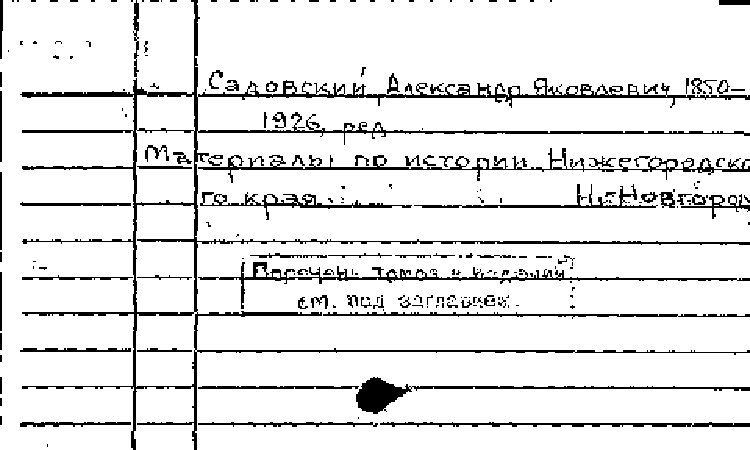 Садовский, Александр Яковлевич, 1850–
1926, ред.
Материалы по истории Нижегородско
го края. Н.-Новгород
Перечень томов и изданий
см. под заглавием.